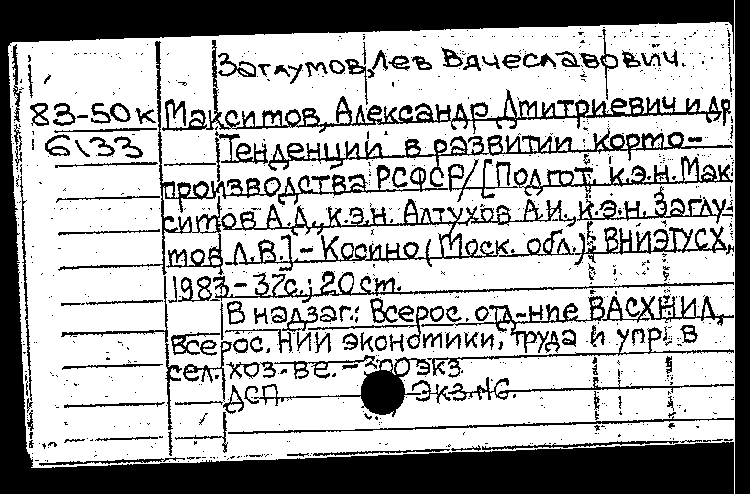 Заглумов, Лев Вячеславович.
83-50к Максимов, Александр Дмитриевич и др
6133 Тенденции в развитии кормо-
производства РСФСР/[Подгот. к.э.н. Мак
симов А.Д., к.э.н. Алтухов А.И., к.э.н. Заглу-
мов Л.В.]. - Косино (Моск. обл.): ВНИЭТУСХ,
1983. - 37с.; 20 см.
В надзаг.: Всерос. отд-ние ВАСХНИЛ,
Всерос. НИИ экономики, труда и упр. в
сел. хоз-ве. - 300 экз
ДСП. Экз. №